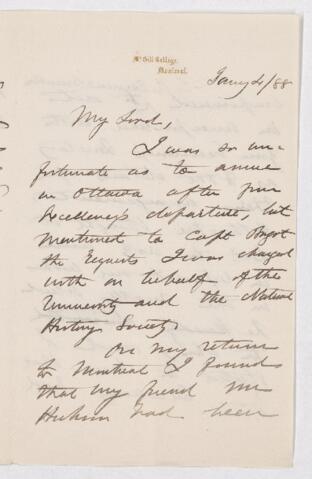 McGill College,
Montreal.
Jany 4/88
My Lord,
I was so un-
fortunate as to arrive
in Ottawa after your
Excellency's departure, but
mentioned to Capt Bagot
the Requests I was charged
with on behalf of the
University and the Natural
History Society.
On my return
to Montreal I found
that my friend Mr
had been